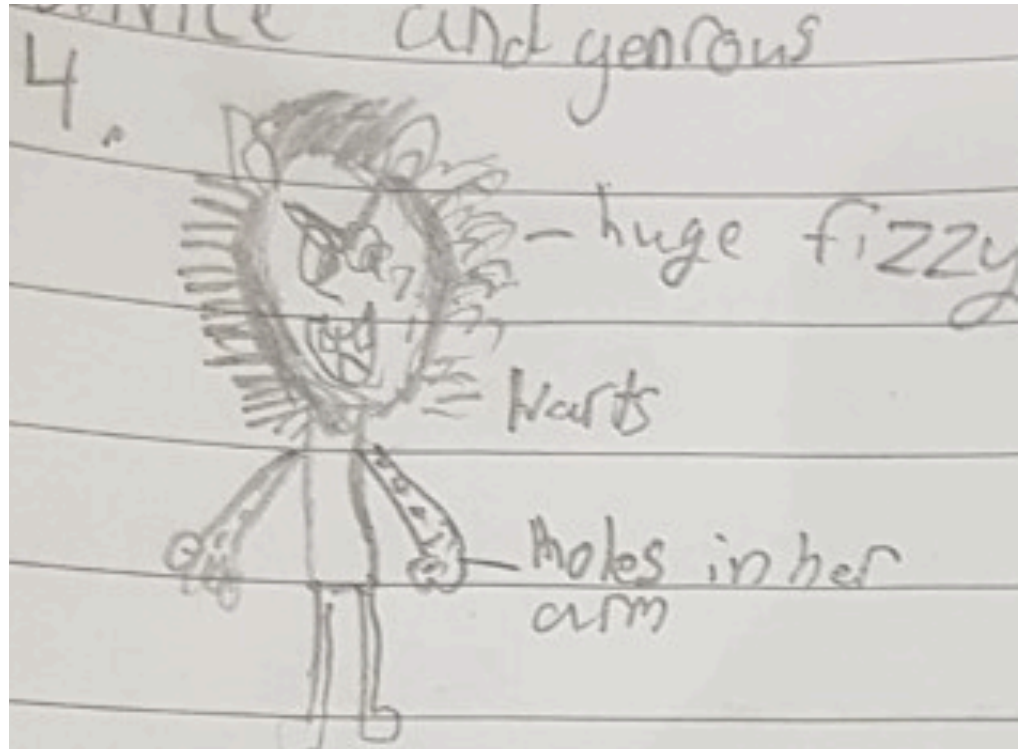 and genrous
4.
huge fizzy
Warts
Moles in her
arm